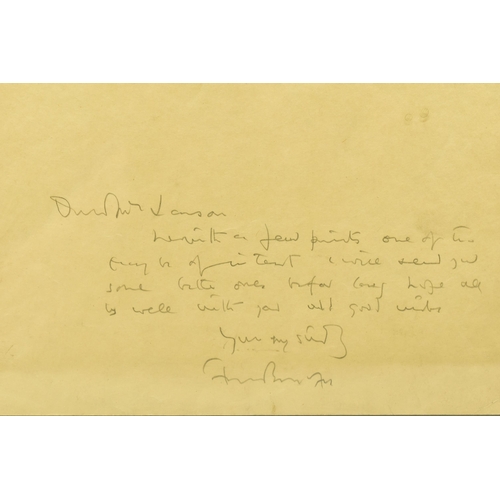 Dear Mr Lawson
herewith a few prints one of two
may be of interest I will send you
some better ones before long hope all
is well with you all good wishes
Yours